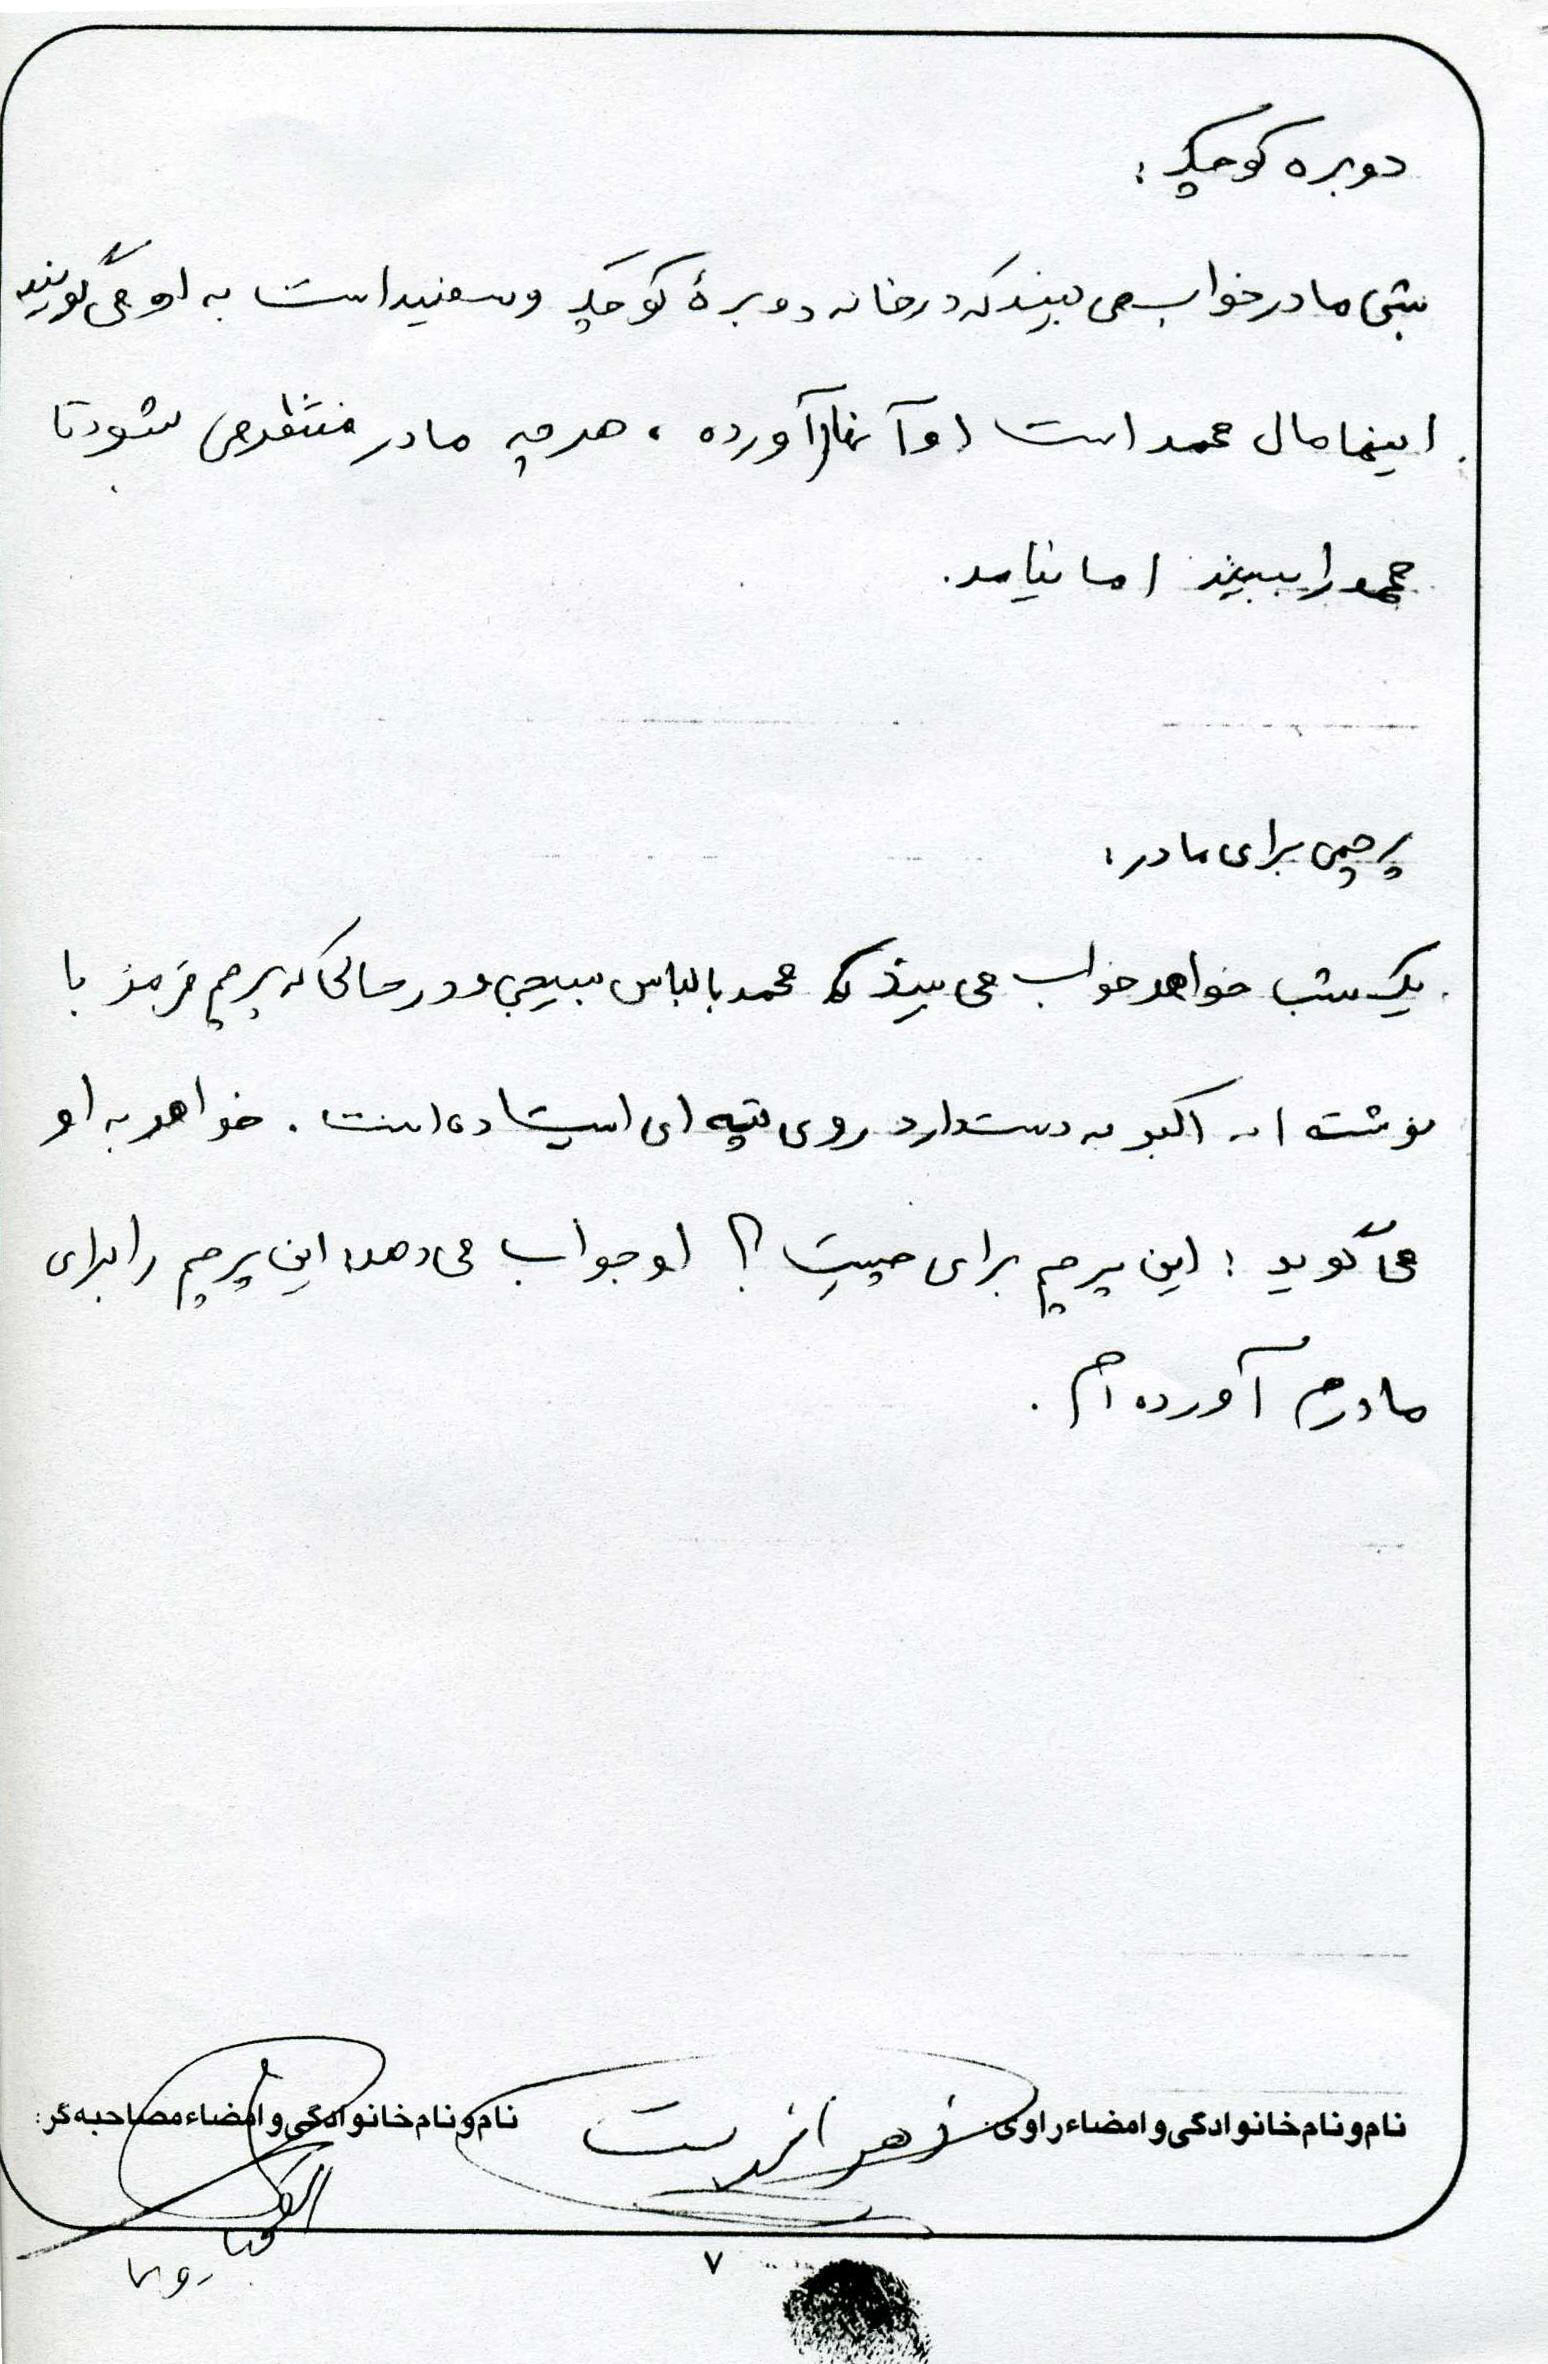 دو بره کوچک :
شبی مادر خواب می بیند که در خانه دو برۀ کوچک و سفید است به او می گویند
اینها مال محمد است او آنها را آورده ، هر چه مادر منتظر می شود تا
محمد را ببیند اما نیامد.
پرچمی برای مادر :
یک شب خواهر خواب می بیند که محمد با لباس بسیجی و در حالی که پرچم قرمز با
نوشته الله اکبر به دست دارد روی تپه ای ایستاده است . خواهر به او
می گوید : این پرچم برای چیست ؟ او جواب می دهد: این پرچم را برای
مادرم آورده ام .
نام و نام خانوادگی و امضاء راوی
نام و نام خانوادگی و امضاء مصاحبه گر:
۷